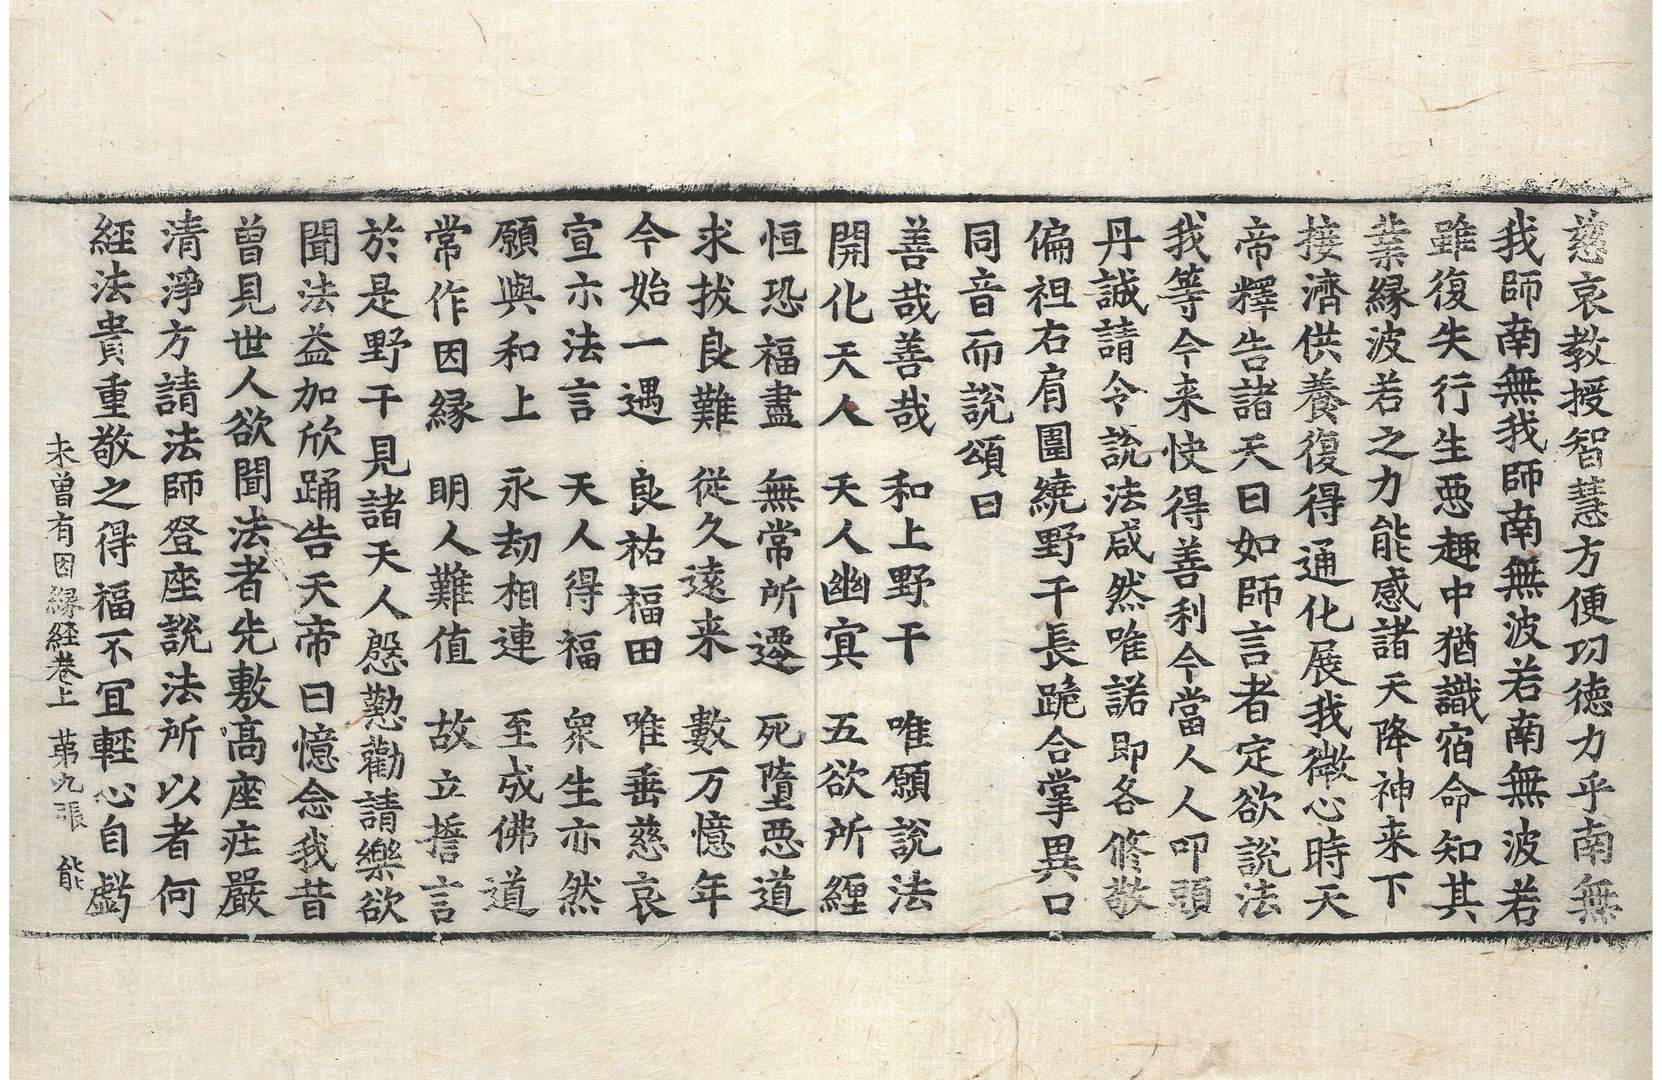 慈哀教授智慧方便功德力乎南無
我師南無我師南無波若南無波若
雖復失行生惡趣中猶識宿命知其
業緣波若之力能感諸天降神来下
接濟供養復得通化展我微心時天
帝釋告諸天曰如師言者定欲說法
我等今来快得善利今當人人叩頭
丹誠請令說法咸然唯諾即各脩敬
偏袒右肩圍繞野干長跪合掌異口
同音而說頌曰
善哉善哉　和上野干　唯願說法
開化天人　天人幽冥　五欲所纏
恒恐福盡　無常所遷　死墮惡道
求拔良難　從久遠来　數万憶年
今始一遇　良祐福田　唯垂慈哀
宣示法言　天人得福　衆生亦然
願與和上　永劫相連　至成佛道
常作因緣　明人難值　故立誓言
於是野干見諸天人慇懃勸請樂欲
聞法益加欣踊告天帝曰憶念我昔
曾見世人欲聞法者先敷高座庄嚴
清淨方請法師登座說法所以者何
經法貴重敬之得福不冝輕心自虧
未曾有因緣経卷上　苐九張　能